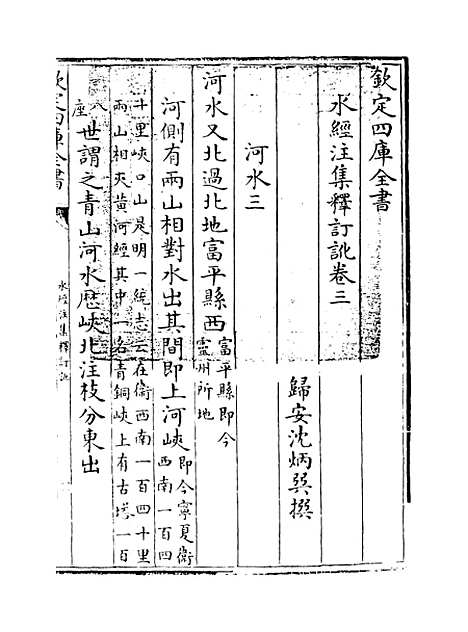 欽定四庫全書
水經注集釋訂訛卷三
歸安沈炳巽撰
河水三
河水又北過北地富平縣西富平縣即今
靈州所地
河側有兩山相對水出其間即上河峽即今寧夏衛
西南一百四
十里峽口山是明一統志云在衛西南一百四十里
兩山相夾黄河經其中一名青銅峽上有古塔一百
八
座世謂之青山河水歴峽北注枝分東出
欽定四庫全書
水經注集釋訂訛